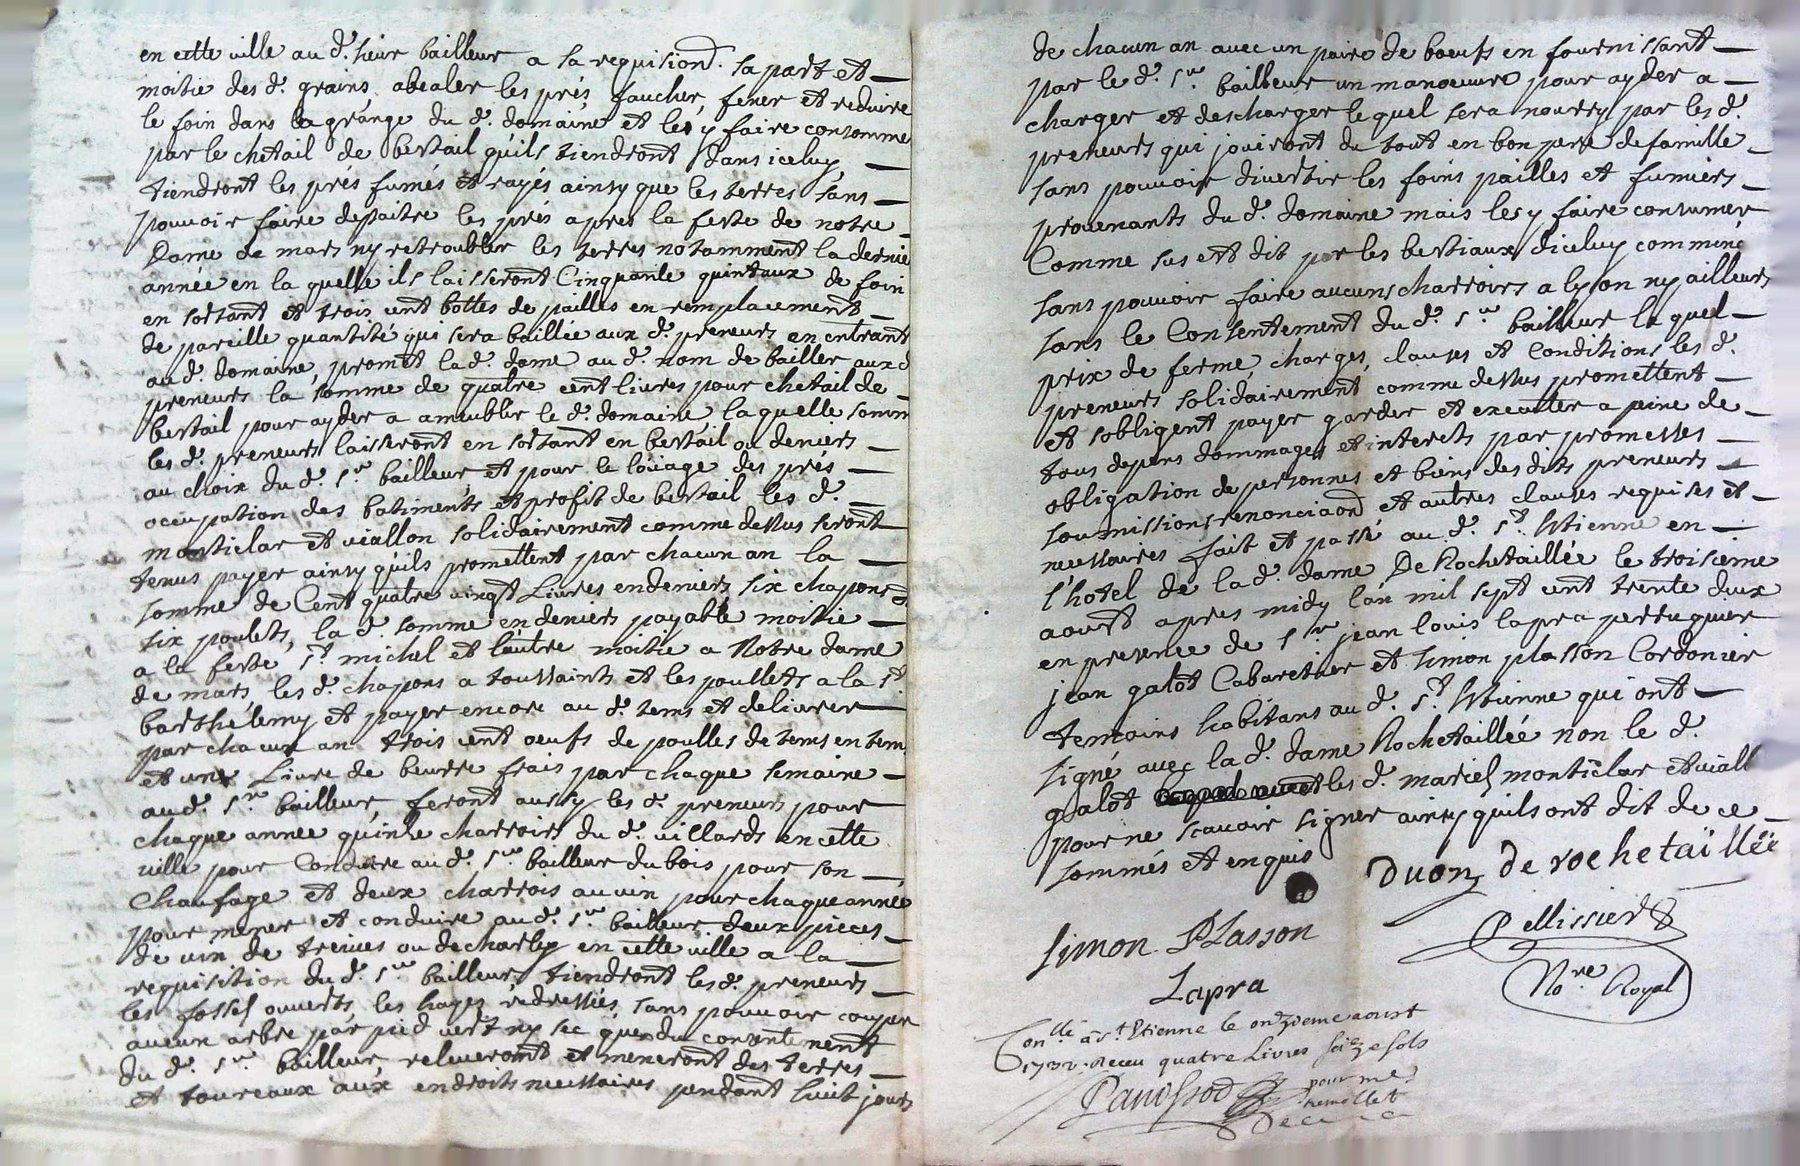 en cette ville au d. sieur bailleur a sa requision. sa part et
moitie des d. grains, abealer les prés faucher, fener et reduire
le foin dans la grange du d. domaine et les y faire consomme
par le chetail de bestail qu'ils tiendront dans iceluy
tiendront les prés fumés et rayés ainsy que les terres sans
pouvoir faire depaitre les prés apres la feste de notre
Dame de mars ny retroubler les terres notamment la derniè
année en la quelle ils laisseront Cinquante quintaux de foin
en sortant et trois cent bottes de pailles en remplacement
de pareille quantité qui sera baillée aux d. preneurs en entrant
au d. domaine, promet la d. dame au d. nom de bailler aux d
preneurs la somme de quatre cent livres pour chetail de
bestail pour ayder a ameubler le d. domaine la quelle somm
les d. preneurs laisseront en sortant en bestail ou deniers
au choix du d. sr. bailleur, et pour le loüage des prés
occupation des batiments et profit de bestail les d.
monticlar et viallon solidairement comme dessus seront
tenus payer ainsy qu'ils promettent par chacun an la
somme de Cent quatre vingt Livres en deniers six chapons et
six poulets, la d. somme en deniers payable moitie
a la feste st. michel et l'autre moitie a Notre dame
de mars, les d. chapons a toussaints et les poullets a la st.
barthélemy et payer encore au d. tems et delivrer
par chacun an trois cent oeufs de poulles de tems en tem
et une Livre de beurre frais par chaque semaine
au d. sr. bailleur, feront aussy les d. preneurs pour
chaque année quinze charroirs du d. villards en cette
ville pour Conduire au d. sr. bailleur du bois pour son
Chaufage et deux charrois au vin pour chaque année
pour mener et conduire au d. sr. bailleur deux pieces
de vin de treives ou de charley en cette ville a la
requisition du d. sr. bailleur, tiendront les d. preneurs
les fossés ouverts, les hayes redressées, sans pouvoir couper
aucun arbre par pied vert ny sec que du consentement
du d. sr. bailleur, releveront et meneront des terres
et toureaux aux endroits necessaires pendant huit jours
de chacun an avec un paire de boeufs en fournissant
par le d. sr. bailleur un manoeuvre pour ayder a
charger et descharger lequel sera nourry par les d.
preneurs qui jouiront du tout en bon pere de famille
sans pouvoir divertir les foins pailles et fumiers
provenants du d. domaine mais les y faire consumer
Comme sus est dit par les bestiaux d'iceluy comme
sans pouvoir faire aucuns charroirs a lyon ny ailleurs
sans le Consentement du d. sr. bailleur le quel
prix de ferme, charges, clauses et Conditions les d.
preneurs solidairement comme dessus promettent
et s'obligent payer garder et executer a peine de
tous depens dommages et interets par promesses
obligation de personnes et biens des dits preneurs
soumissions renonciaon et autres clauses requises et
necessaires fait et passé au d. st. Etienne en
l'hotel de la d. dame De Rochetaillée le troisieme
aoust apres midy l'an mil sept cent trente deux
en presence de sr. jean louis lapra perruquier
jean galot Cabaretier et simon plasson Cordonier
temoins habitans au d. st. Etienne qui ont
signé avec la d. dame Rochetaillée non le d.
galot les d. mariés monticlar et viall
pour ne scavoir signer ainsy quils ont dit de ce
sommés et enquis
duon de rochetaïlléé
Simon PLasson
Pellissier
Nore. Royal
Lapra
Conllé a st Etienne le onzieme aoust
1732. Receu quatre Livres seize sols
pour me